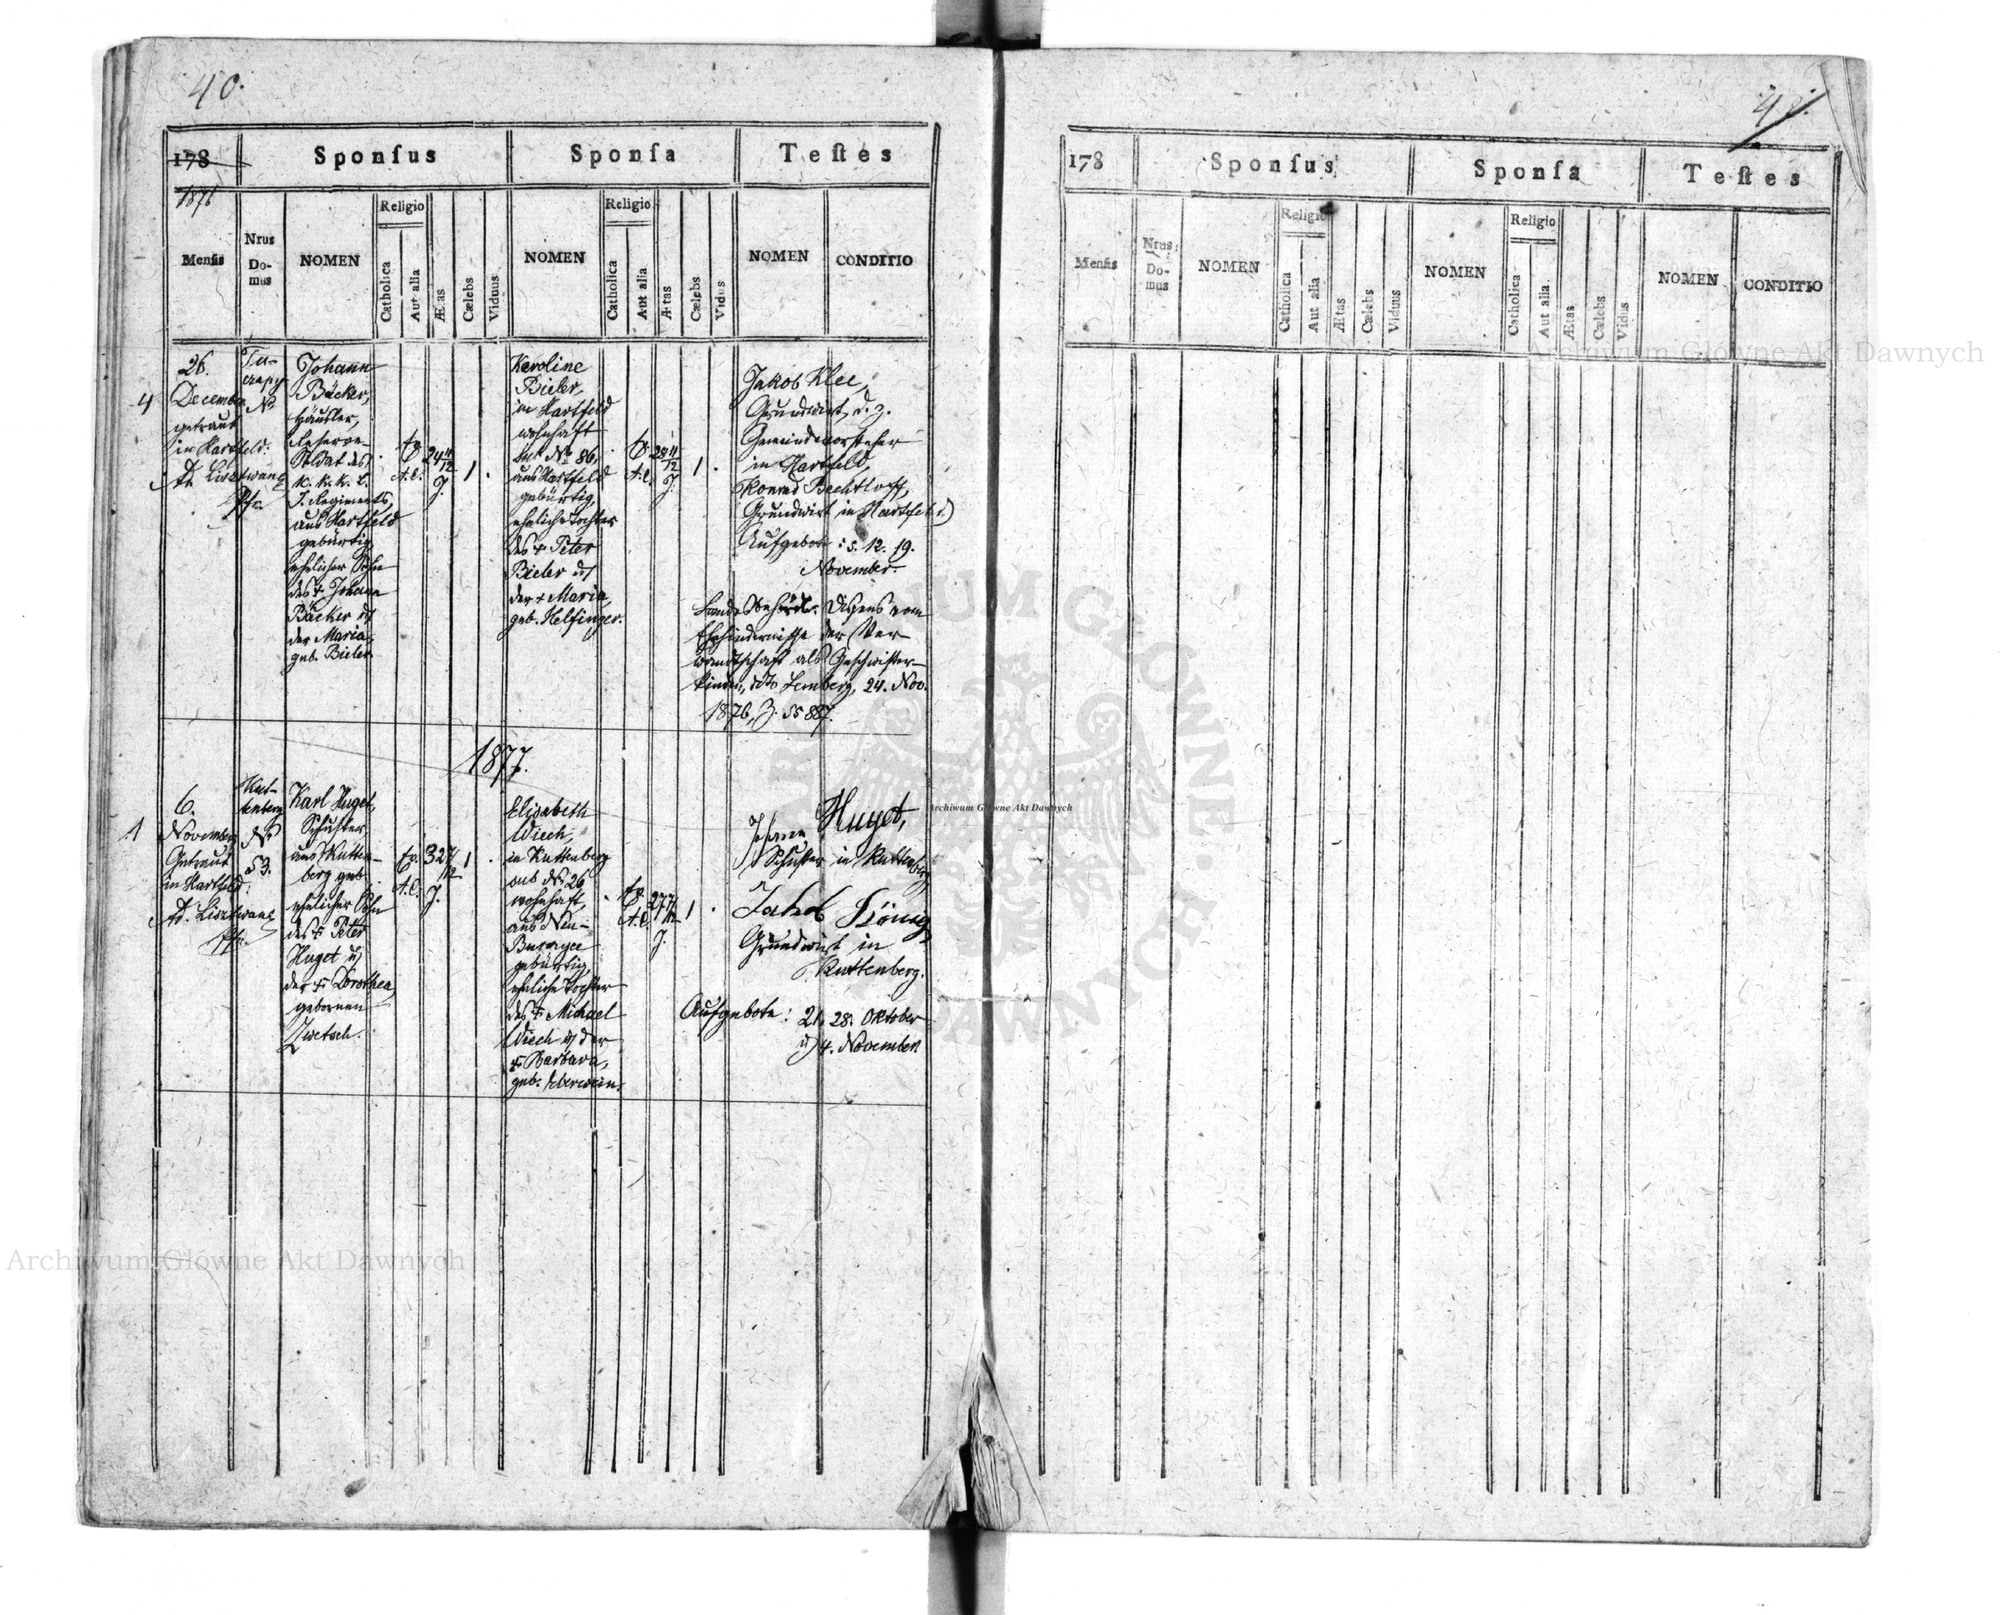 40.
178
Sponſus
Sponſa
Teſtes
1876
Menſis
Nrus
Do-
mus
NOMEN
Religio
Catholica
Aut alia
Ætas
Cælebs
Viduus
NOMEN
Religio
Catholica
Aut alia
Ætas
Cælebs
Vidus
NOMEN
CONDITIO
4
26.
December
getraut
in Hartfeld:
Lisztwan
Pfr.
Tu-
czapy
No
Johann
Bäcker,
Häusler,
Reserve-
Soldat des
k. k. k. L.
I. Regiments,
aus Hartfeld
gebürtig,
ehelicher Sohn
des + Johann
Bäcker u
der Maria,
geb. Bieler.
A. C.
24 11/12
J.
1
Karoline
Bieler,
in Hartfeld
wohnhaft
No 86,
aus Hartfeld
gebürtig,
eheliche Tochter
des + Peter
Bieler u
der + Maria
geb. Helfinger.
A. C.
J.
1
Jakob Klee,
Grundwirt, d. z.
Gemeindevorsteher
in Hartfeld,
Konrad Bechtloff,
Grundwirt in Hartfeld.
Aufgebote: 5. 12. 19.
November.
Landesbehördl. Dispens vom
Ehehindernisse der Ver-
wandtschaft als Geschwister-
kinder, ddto Lemberg, 24. Nov.
1876, Z. 55887.
1877.
1
6.
November
Getraut
in Hartfeld:
Lisztwan
Pfr.
Kut-
tenberg
No
53.
Karl Huget,
Schuster,
aus Kutten-
berg geb.
ehelicher Sohn
des + Peter
Huget u
der + Dorothea,
gebornen
Zwetsch.
A. C.
32 7/12
J.
1
Elisabeth
Wiech,
in Kuttenberg
sub No 26
wohnhaft,
aus Neu-
Burczyce
gebürtig,
eheliche Tochter
des + Michael
Wiech u der
+ Barbara,
geb. Eberwein.
A. C.
27 7/12
J.
1
Johann Huget,
Schuster in Kuttenberg
Jakob König,
Grundwirt in
Kuttenberg.
Aufgebote: 21. 28. Oktober
u 4. November.
178
Sponſus
Sponſa
Teſtes
Menſis
Nrus
Do-
mus
NOMEN
Religio
Catholica
Aut alia
Ætas
Cælebs
Viduus
NOMEN
Religio
Catholica
Aut alia
Ætas
Cælebs
Vidus
NOMEN
CONDITIO
Archiwum Główne Akt Dawnych
Archiwum Główne Akt Dawnych
Archiwum Główne Akt Dawnych
ARCHIWUM GŁÓWNE AKT DAWNYCH